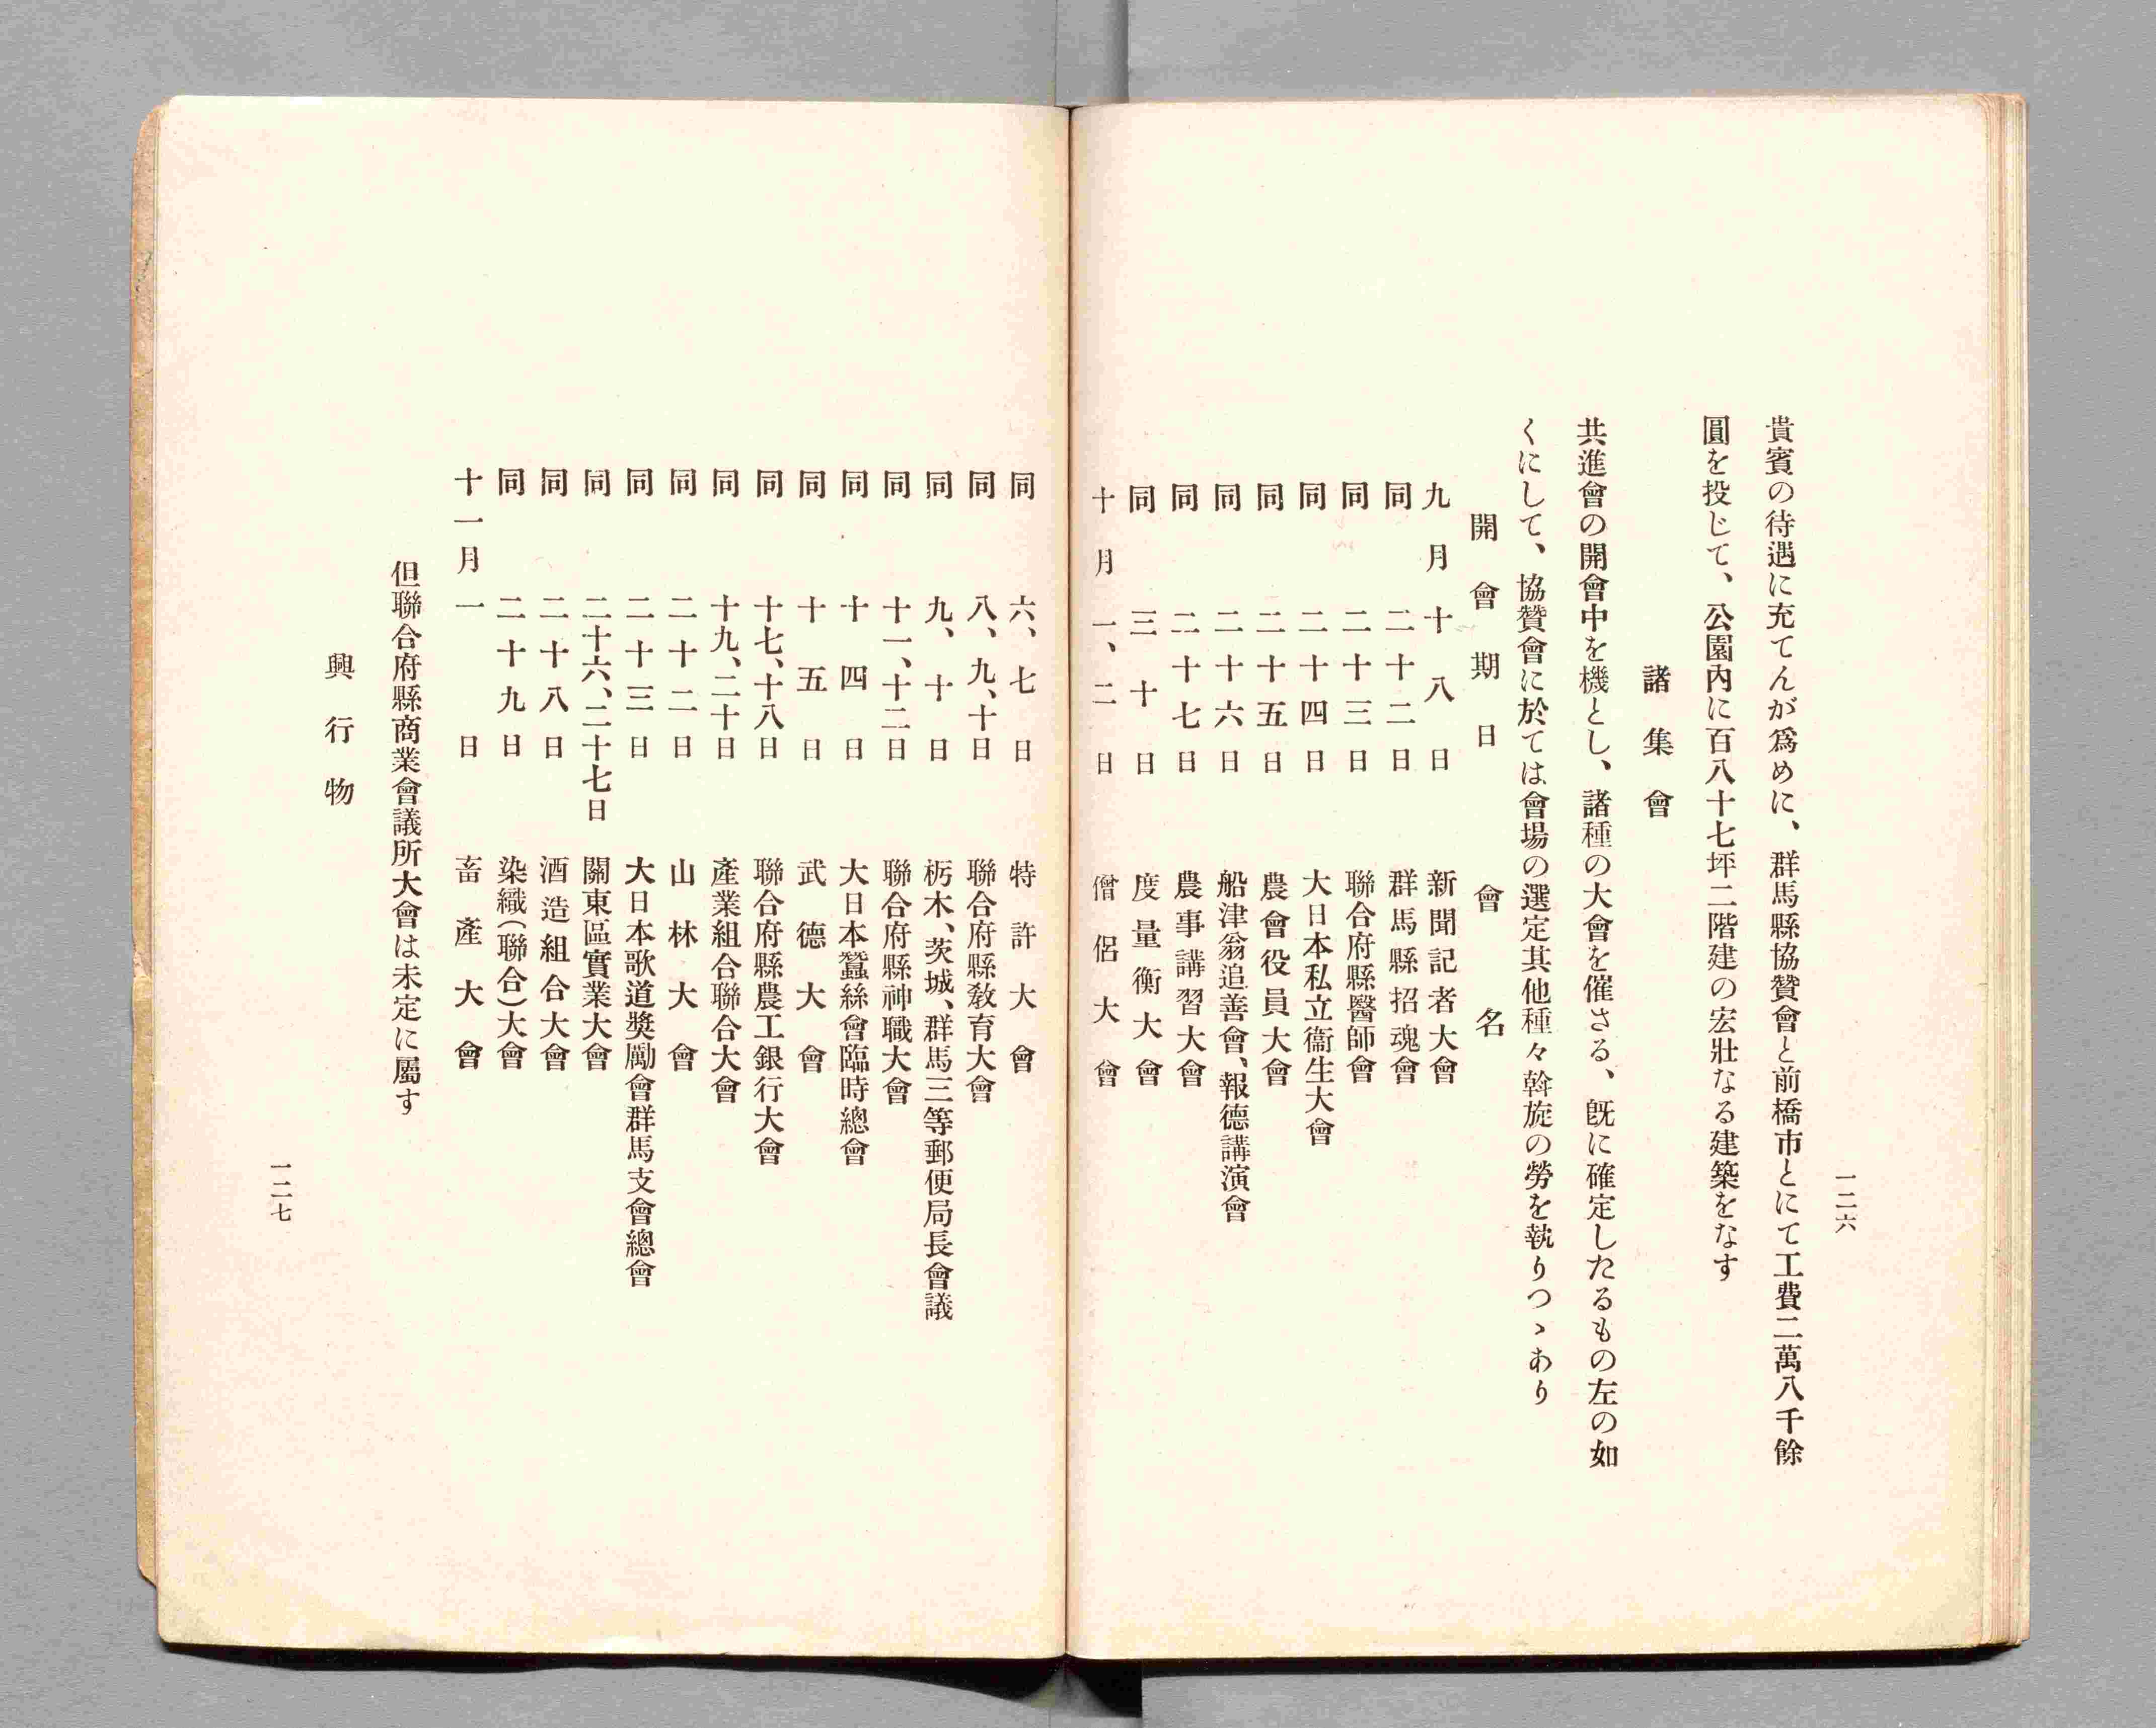 一二六
貴賓の待遇に充てんが爲めに、群馬縣協贊會と前橋市とにて工費二萬八千餘
圓を投じて、公園內に百八十七坪二階建の宏壯なる建築をなす
諸集會
共進會の開會中を機とし、諸種の大會を催さる、旣に確定したるもの左の如
くにして、協贊會に於ては會場の選定其他種々斡旋の勞を執りつゝあり
開會期日 會名
九月十八日 新聞記者大會
同二十二日 群馬縣招魂會
同二十三日 聯合府縣醫師會
同二十四日 大日本私立衞生大會
同二十五日 農會役員大會
同二十六日 船津翁追善會、報德講演會
同二十七日 農事講習大會
同三十日 度量衡大會
十月一、二日 僧侶大會
同六、七日 特許大會
同八、九、十日 聯合府縣敎育大會
同九、十日 栃木、茨城、群馬三等郵便局長會議
同十一、十二日 聯合府縣神職大會
同十四日 大日本蠶絲會臨時總會
同十五日 武德大會
同十七、十八日 聯合府縣農工銀行大會
同十九、二十日 產業組合聯合大會
同二十二日 山林大會
同二十三日 大日本歌道奬勵會群馬支會總會
同二十六、二十七日 關東區實業大會
同二十八日 酒造組合大會
同二十九日 染織(聯合)大會
十一月一日 畜產大會
但聯合府縣商業會議所大會は未定に屬す
興行物
一二七